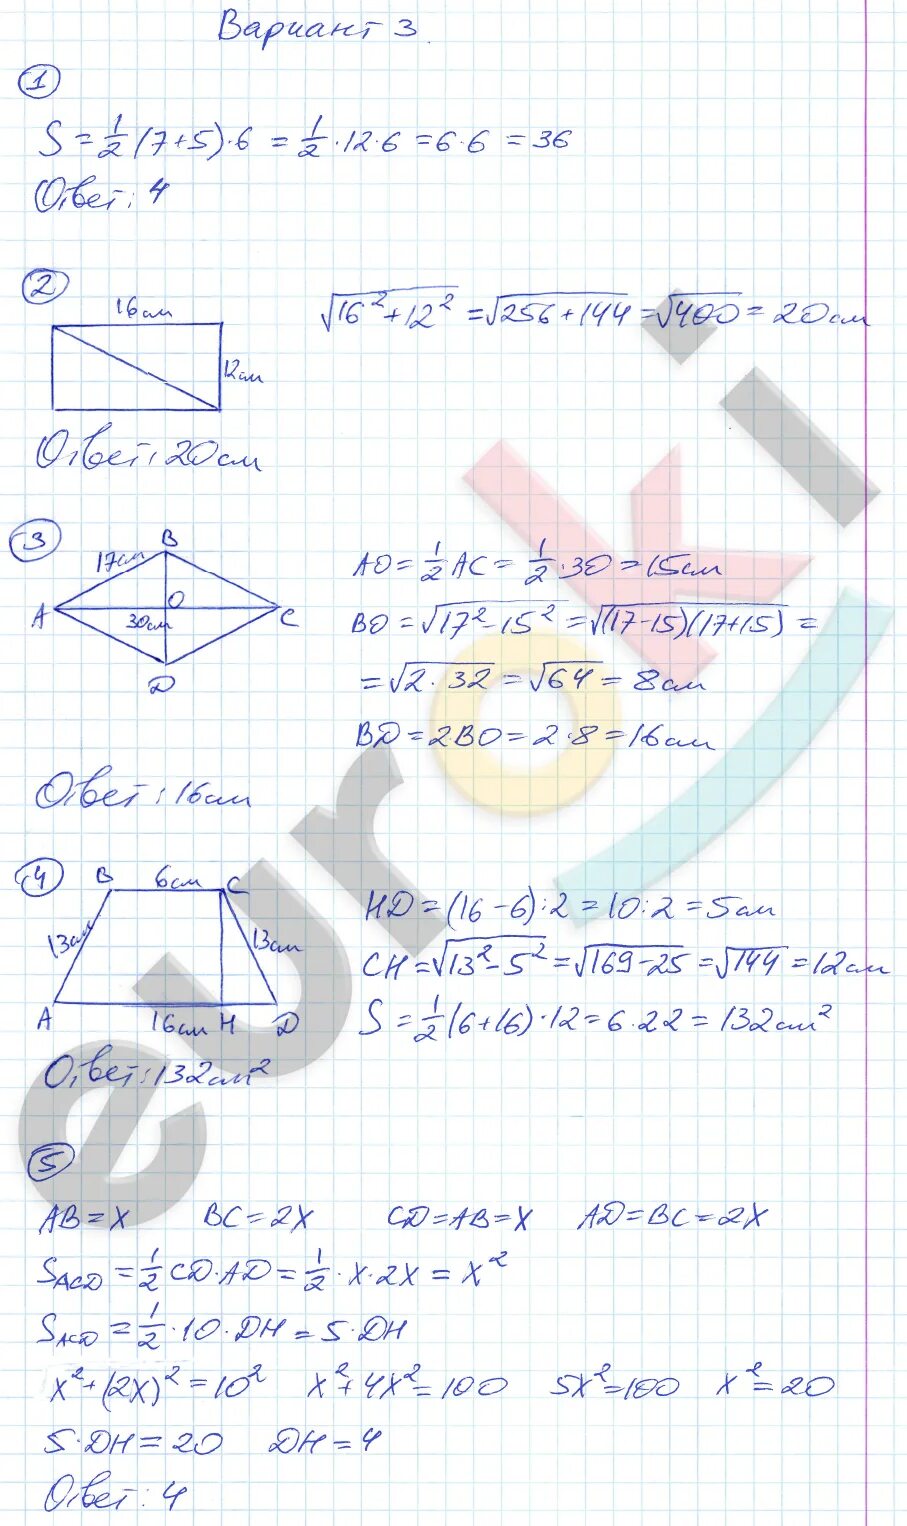 Вариант 3.
1
S = 1/2 (7+5)·6 = 1/2 · 12·6 = 6·6 = 36
Ответ: 4
2
16см
12см
√(16² + 12²) = √(256 + 144) = √400 = 20см
Ответ: 20см
3
B
17см
A
O
C
30см
D
AO = 1/2 AC = 1/2 · 30 = 15см
BO = √(17² - 15²) = √((17-15)(17+15)) =
= √(2·32) = √64 = 8см
BD = 2BO = 2·8 = 16см
Ответ: 16см
4
B
6см
C
13см
13см
A
16см
H
D
HD = (16-6):2 = 10:2 = 5см
CH = √(13² - 5²) = √(169-25) = √144 = 12см
S = 1/2 (6+16)·12 = 6·22 = 132см²
Ответ: 132см²
5
AB = x BC = 2x CD = AB = x AD = BC = 2x
S_ACD = 1/2 CD·AD = 1/2 · x·2x = x²
S_ACD = 1/2 · 10 · DH = 5·DH
x² + (2x)² = 10² x² + 4x² = 100 5x² = 100 x² = 20
5·DH = 20 DH = 4
Ответ: 4
euroki